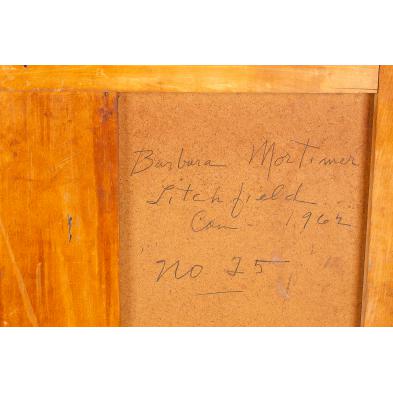 Barbara Mortimer
Litchfield
Con - 1962
No 25